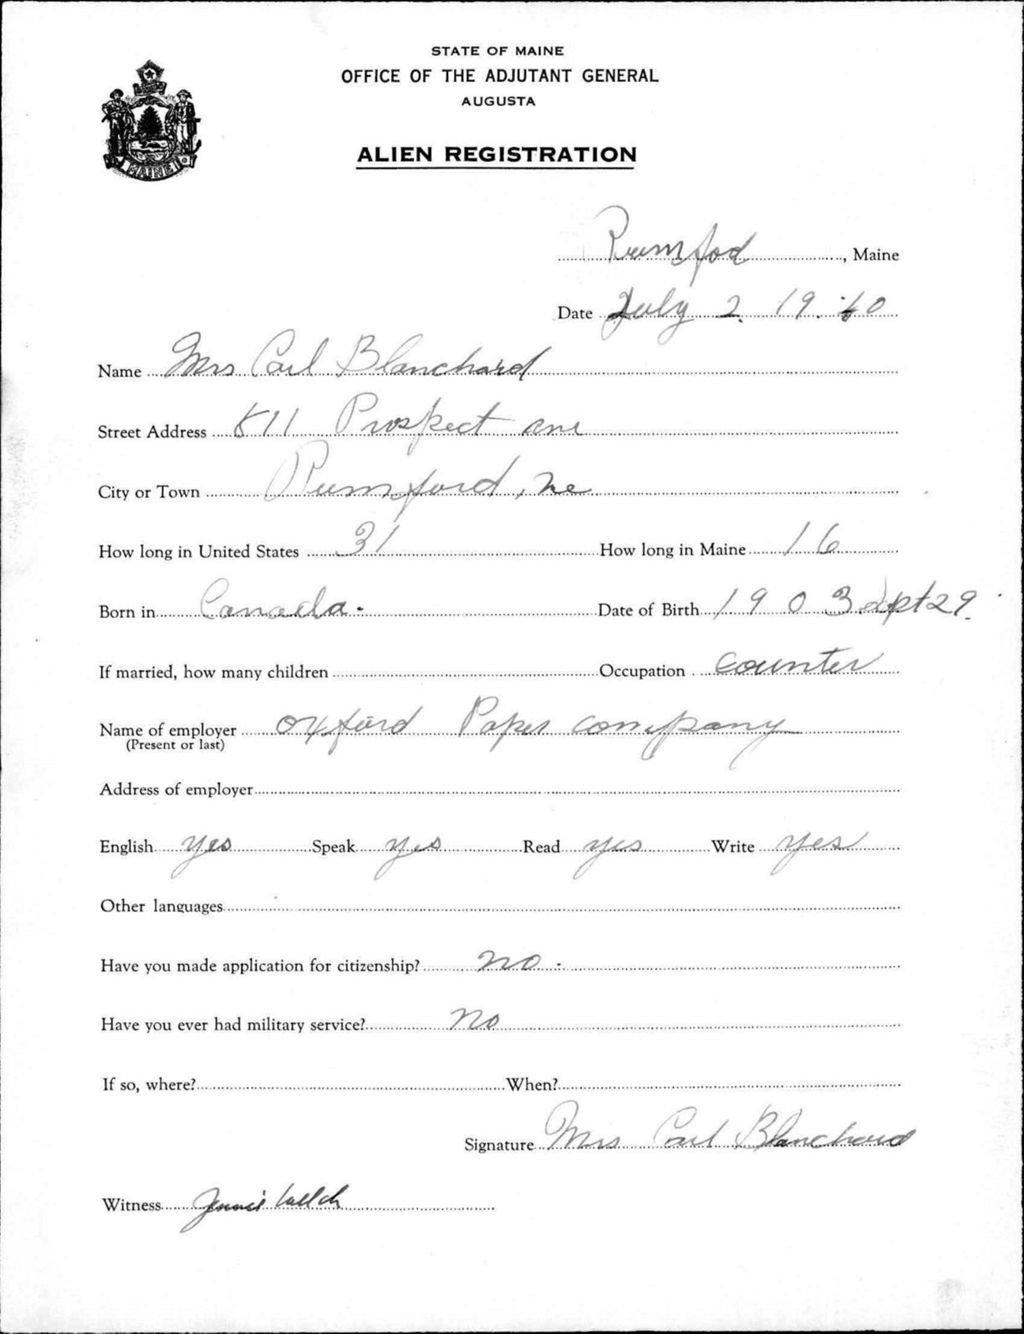 STATE OF MAINE
OFFICE OF THE ADJUTANT GENERAL
AUGUSTA
ALIEN REGISTRATION
MAINE
Rumfod, Maine
Date July 2. 19.40
Name Mrs Carl Blanchard
Street Address 511 Prospect ave
City or Town Rumford, Me
How long in United States 31 How long in Maine 16
Born in Canada. Date of Birth 1903 Sept 29.
If married, how many children Occupation Counter
Name of employer Oxford Paper Company
(Present or last)
Address of employer
English yes Speak yes Read yes Write yes
Other languages
Have you made application for citizenship? no.
Have you ever had military service? No
If so, where? When?
Signature Mrs Carl Blanchard
Witness Jennie Welch